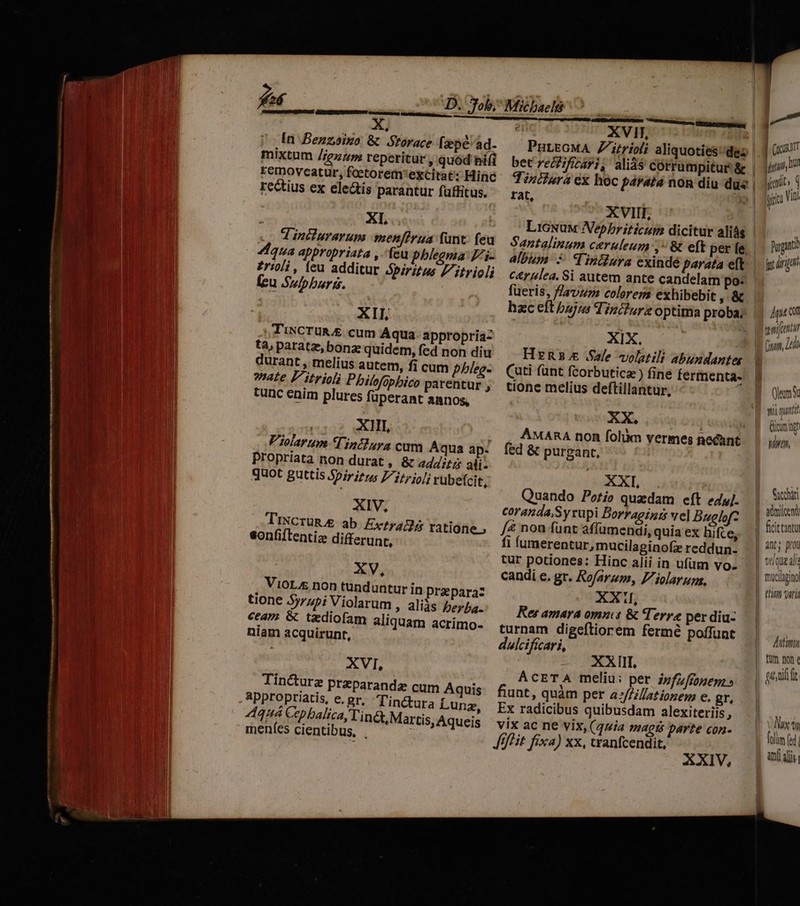 626 D. Joh. Michaelis
X.
In Benzoino & Storace sæpè ad-
mixtum lignum reperitur, quod nisi
removeatur, fœtorem excitat: Hinc
rectius ex electis parantur suffitus.
XI.
Tincturarum menstrua sunt seu
Aqua appropriata, seu phlegma Vi-
trioli, seu additur Spiritus Vitrioli
seu Sulphuris.
XII.
TINCTURÆ cum Aqua appropria-
ta, paratæ, bonæ quidem, sed non diu
durant, melius autem, si cum phleg-
mate Vitrioli Philosophico parentur,
tunc enim plures superant annos,
XIII.
Violarum Tinctura cum Aqua ap-
propriata non durat, & additis ali-
quot guttis Spiritus Vitrioli rubescit,
XIV.
TINCTURÆ ab Extractis ratione
consistentiæ differunt,
XV.
VIOLÆ non tunduntur in præpara-
tione Syrupi Violarum, aliàs herba-
ceam & tædiosam aliquam acrimo-
niam acquirunt,
XVI.
Tincturæ præparandæ cum Aquis
appropriatis, e. gr. Tinctura Lunæ,
Aquâ Cephalica, Tinct. Martis, Aqueis
menses cientibus,
XVII.
PHLEGMA Vitrioli aliquoties de-
bet rectificari, aliàs corrumpitur &
Tinctura ex hoc parata non diu du-
rat,
XVIII.
LIGNUM Nephriticum dicitur aliàs
Santalinum cæruleum, & est per se
album : Tinctura exinde parata est
cærulea. Si autem ante candelam po-
sueris, flavum colorem exhibebit, &
hæc est hujus Tincturæ optima proba.
XIX.
HERBÆ Sale volatili abundantes
(uti sunt scorbuticæ) sine fermenta-
tione melius destillantur,
XX.
AMARA non solùm vermes necant
sed & purgant,
XXI.
Quando Potio quædam est edul-
coranda, Syrupi Borraginis vel Buglos-
sæ non sunt assumendi, quia ex hisce,
si sumerentur, mucilaginosæ reddun-
tur potiones: Hinc alii in usum vo-
candi e. gr. Rosarum, Violarum.
XXII.
Res amara omnis & Terræ per diu-
turnam digestiorem fermè possunt
dulcificari,
XXIII.
ACETA melius per infusionem
fiunt, quàm per destillationem e. gr.
Ex radicibus quibusdam alexiteriis,
vix ac ne vix, (quia magis parte con-
sistit fixa) xx, transcendit,
XXIV,